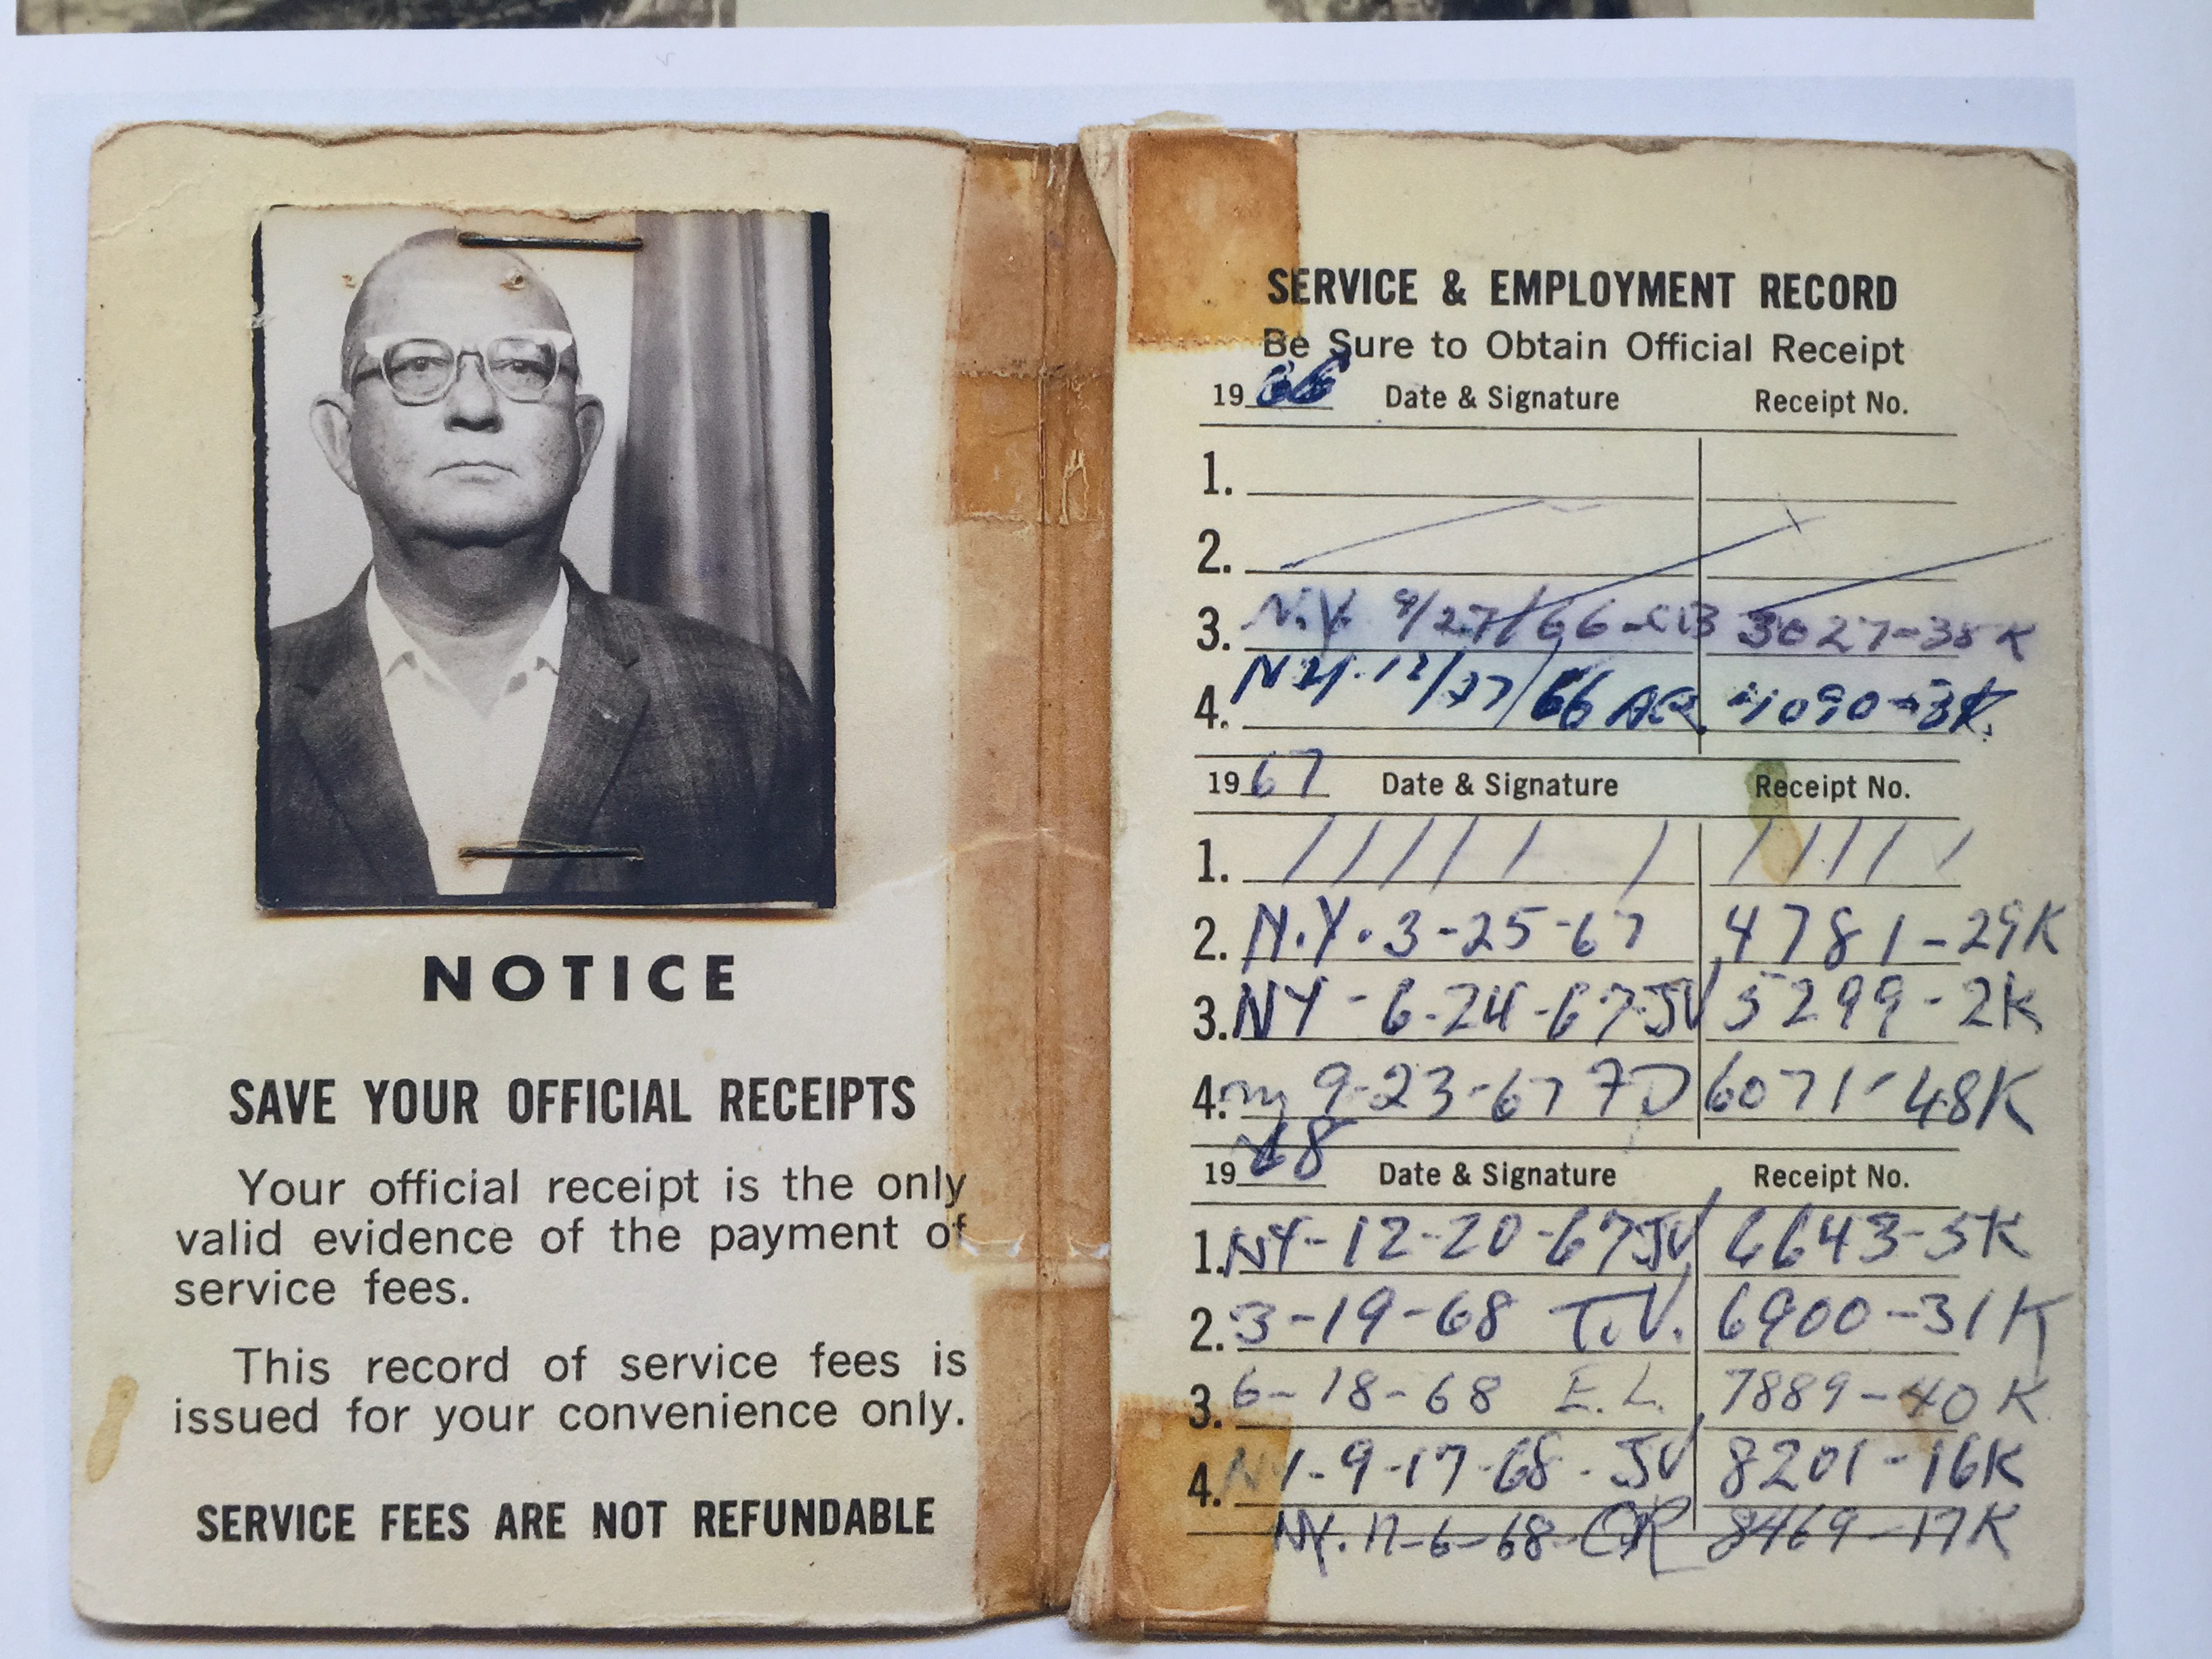 NOTICE
SAVE YOUR OFFICIAL RECEIPTS
Your official receipt is the only
valid evidence of the payment of
service fees.
This record of service fees is
issued for your convenience only.
SERVICE FEES ARE NOT REFUNDABLE
SERVICE & EMPLOYMENT RECORD
Be Sure to Obtain Official Receipt
1966 Date & Signature Receipt No.
1.
2.
3. N.Y. 9/27/66 3027-38K
4. NY. 12/27/66 4090-3K
1967 Date & Signature Receipt No.
1. / / / / / / / / / / /
2. N.Y. 3-25-67 4781-29K
3. NY-6-24-67-JV 5299-2K
4. ny 9-23-67 FD 6071-48K
1968 Date & Signature Receipt No.
1. NY-12-20-67 JV 6643-5K
2. 3-19-68 T.V. 6900-31K
3. 6-18-68 E.L. 7889-40K
4. NY-9-17-68-JV 8201-16K
NY. 11-6-68 8469-17K